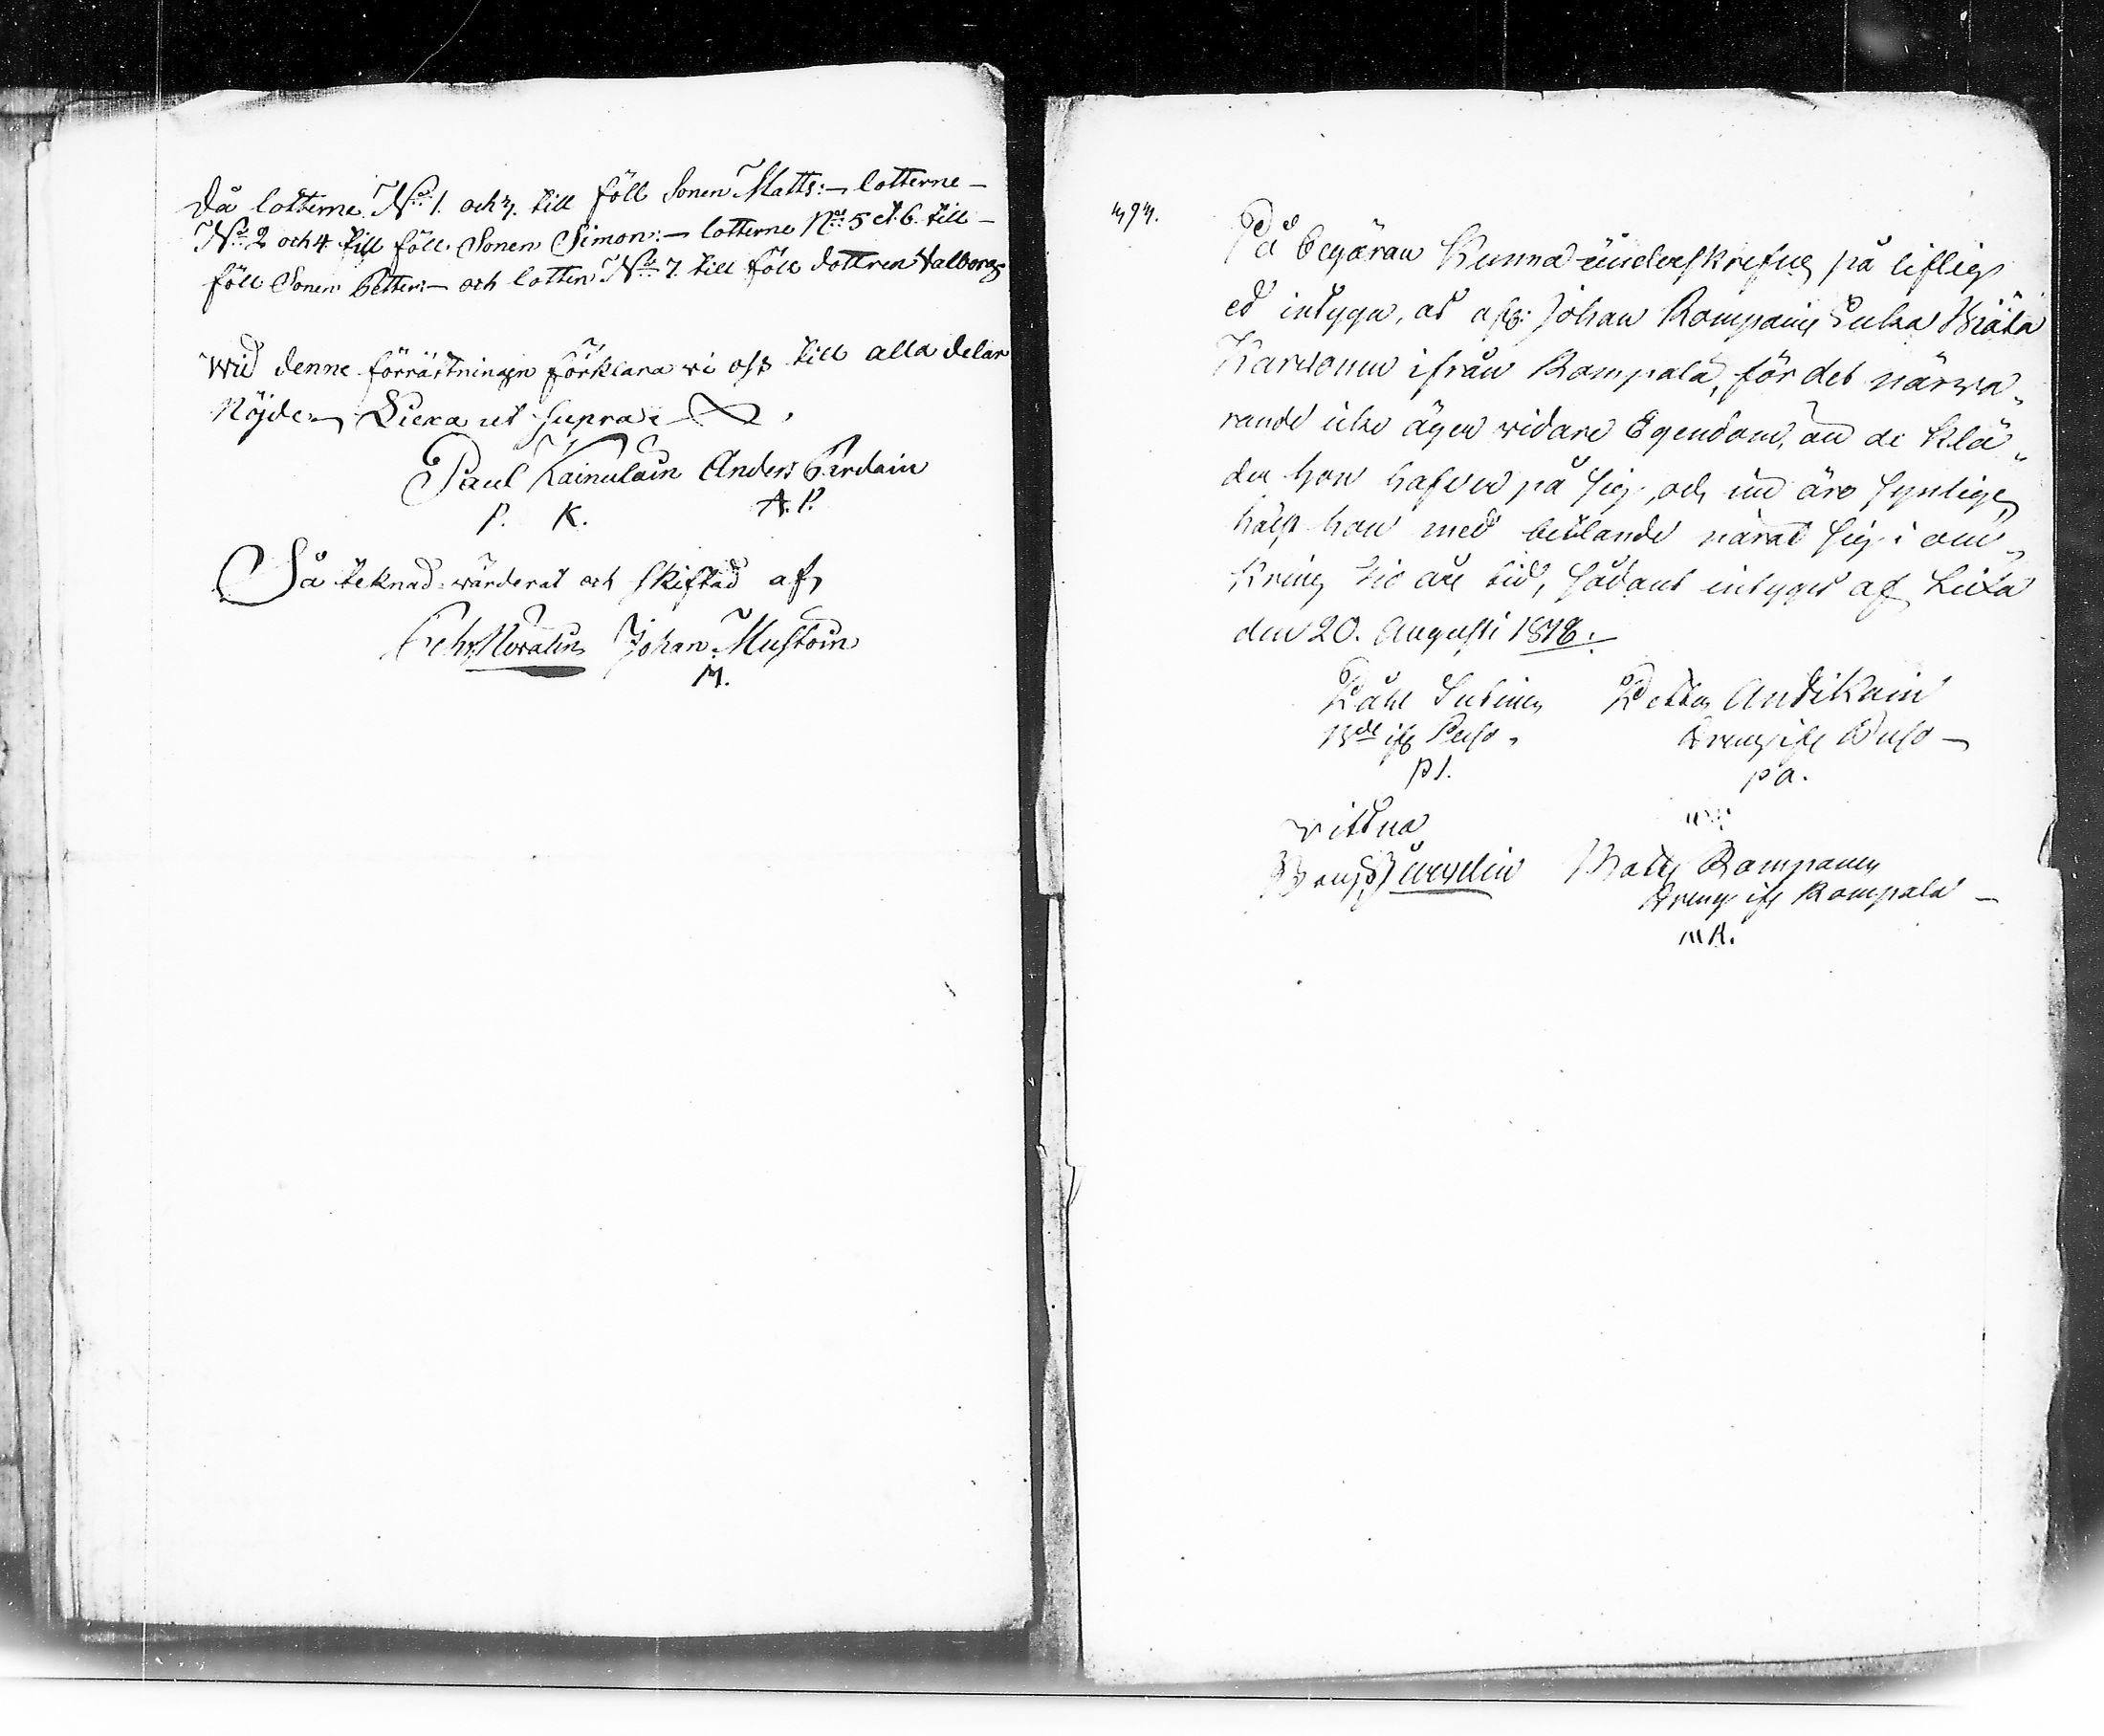 Då lotterne No 1. och 3. till föll Sonen Matts:— lotterne —
No 2 och 4 till föll Sonen Simon:— lotterne No 5 et 6. till —
föll Sonen Petter:— och lotten No 7. till föll dottren Valborg
Wid denne förrättningen förklara wi oss till alla delar
Nöjde. Liexa ut Supra
Paul Kainulain Anders Pardain
P. K. A. P.
Så teknad wärderat och skiftad af
Johan Mustoin
M.
På begäran kunna underskrefne på liflig
ed intyga, at afl: Johan Rompanis Enka Brita
Karvonen ifrån Rompala, för det närva„
rande icke äger vidare Egendom, än de klä„
der hon hafver på sig, och
hon med bettlande närat sig i om„
kring tio års tid, sådant intygas af Liexa
den 20. Augusti 1818.
Påhl Petter Antikain
Dreng ifr
P I. P A.
vittna
Matts Rompanen
Dreng ifr Rompala —
M R.